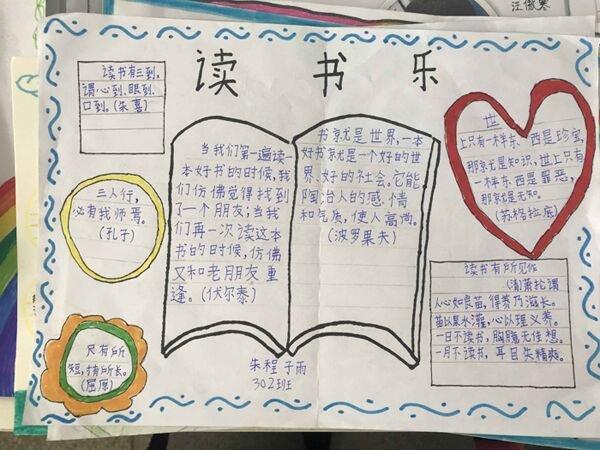 汪傲寒
读书乐
读书有三到,
谓心到、眼到、
口到。(朱熹)
三人行,
必有我师焉。
(孔子)
尺有所
短,寸有所长。
(屈原)
当我们第一遍读一
本好书的时候,我
们仿佛觉得找到
了一个朋友;当我
们再一次读这本
书的时候,仿佛
又和老朋友重
逢。(伏尔泰)
书京尤是世界,一本
好书京尤是一个好的世
界、好的社会。它能
陶冶人的感情
和气质,使人高尚。
(波罗果夫)
世
上只有一样东、西是珍宝,
那京尤是知识;世上只有
一样东西是罪恶,
那京尤是无知。
(苏格拉底)
读书有所见作
(清)萧抡谓
人心如良苗,得养乃滋长。
苗以泉水灌,心以理义养。
一日不读书,胸臆无佳想。
一月不读书,耳目失精爽。
朱程子雨
302班